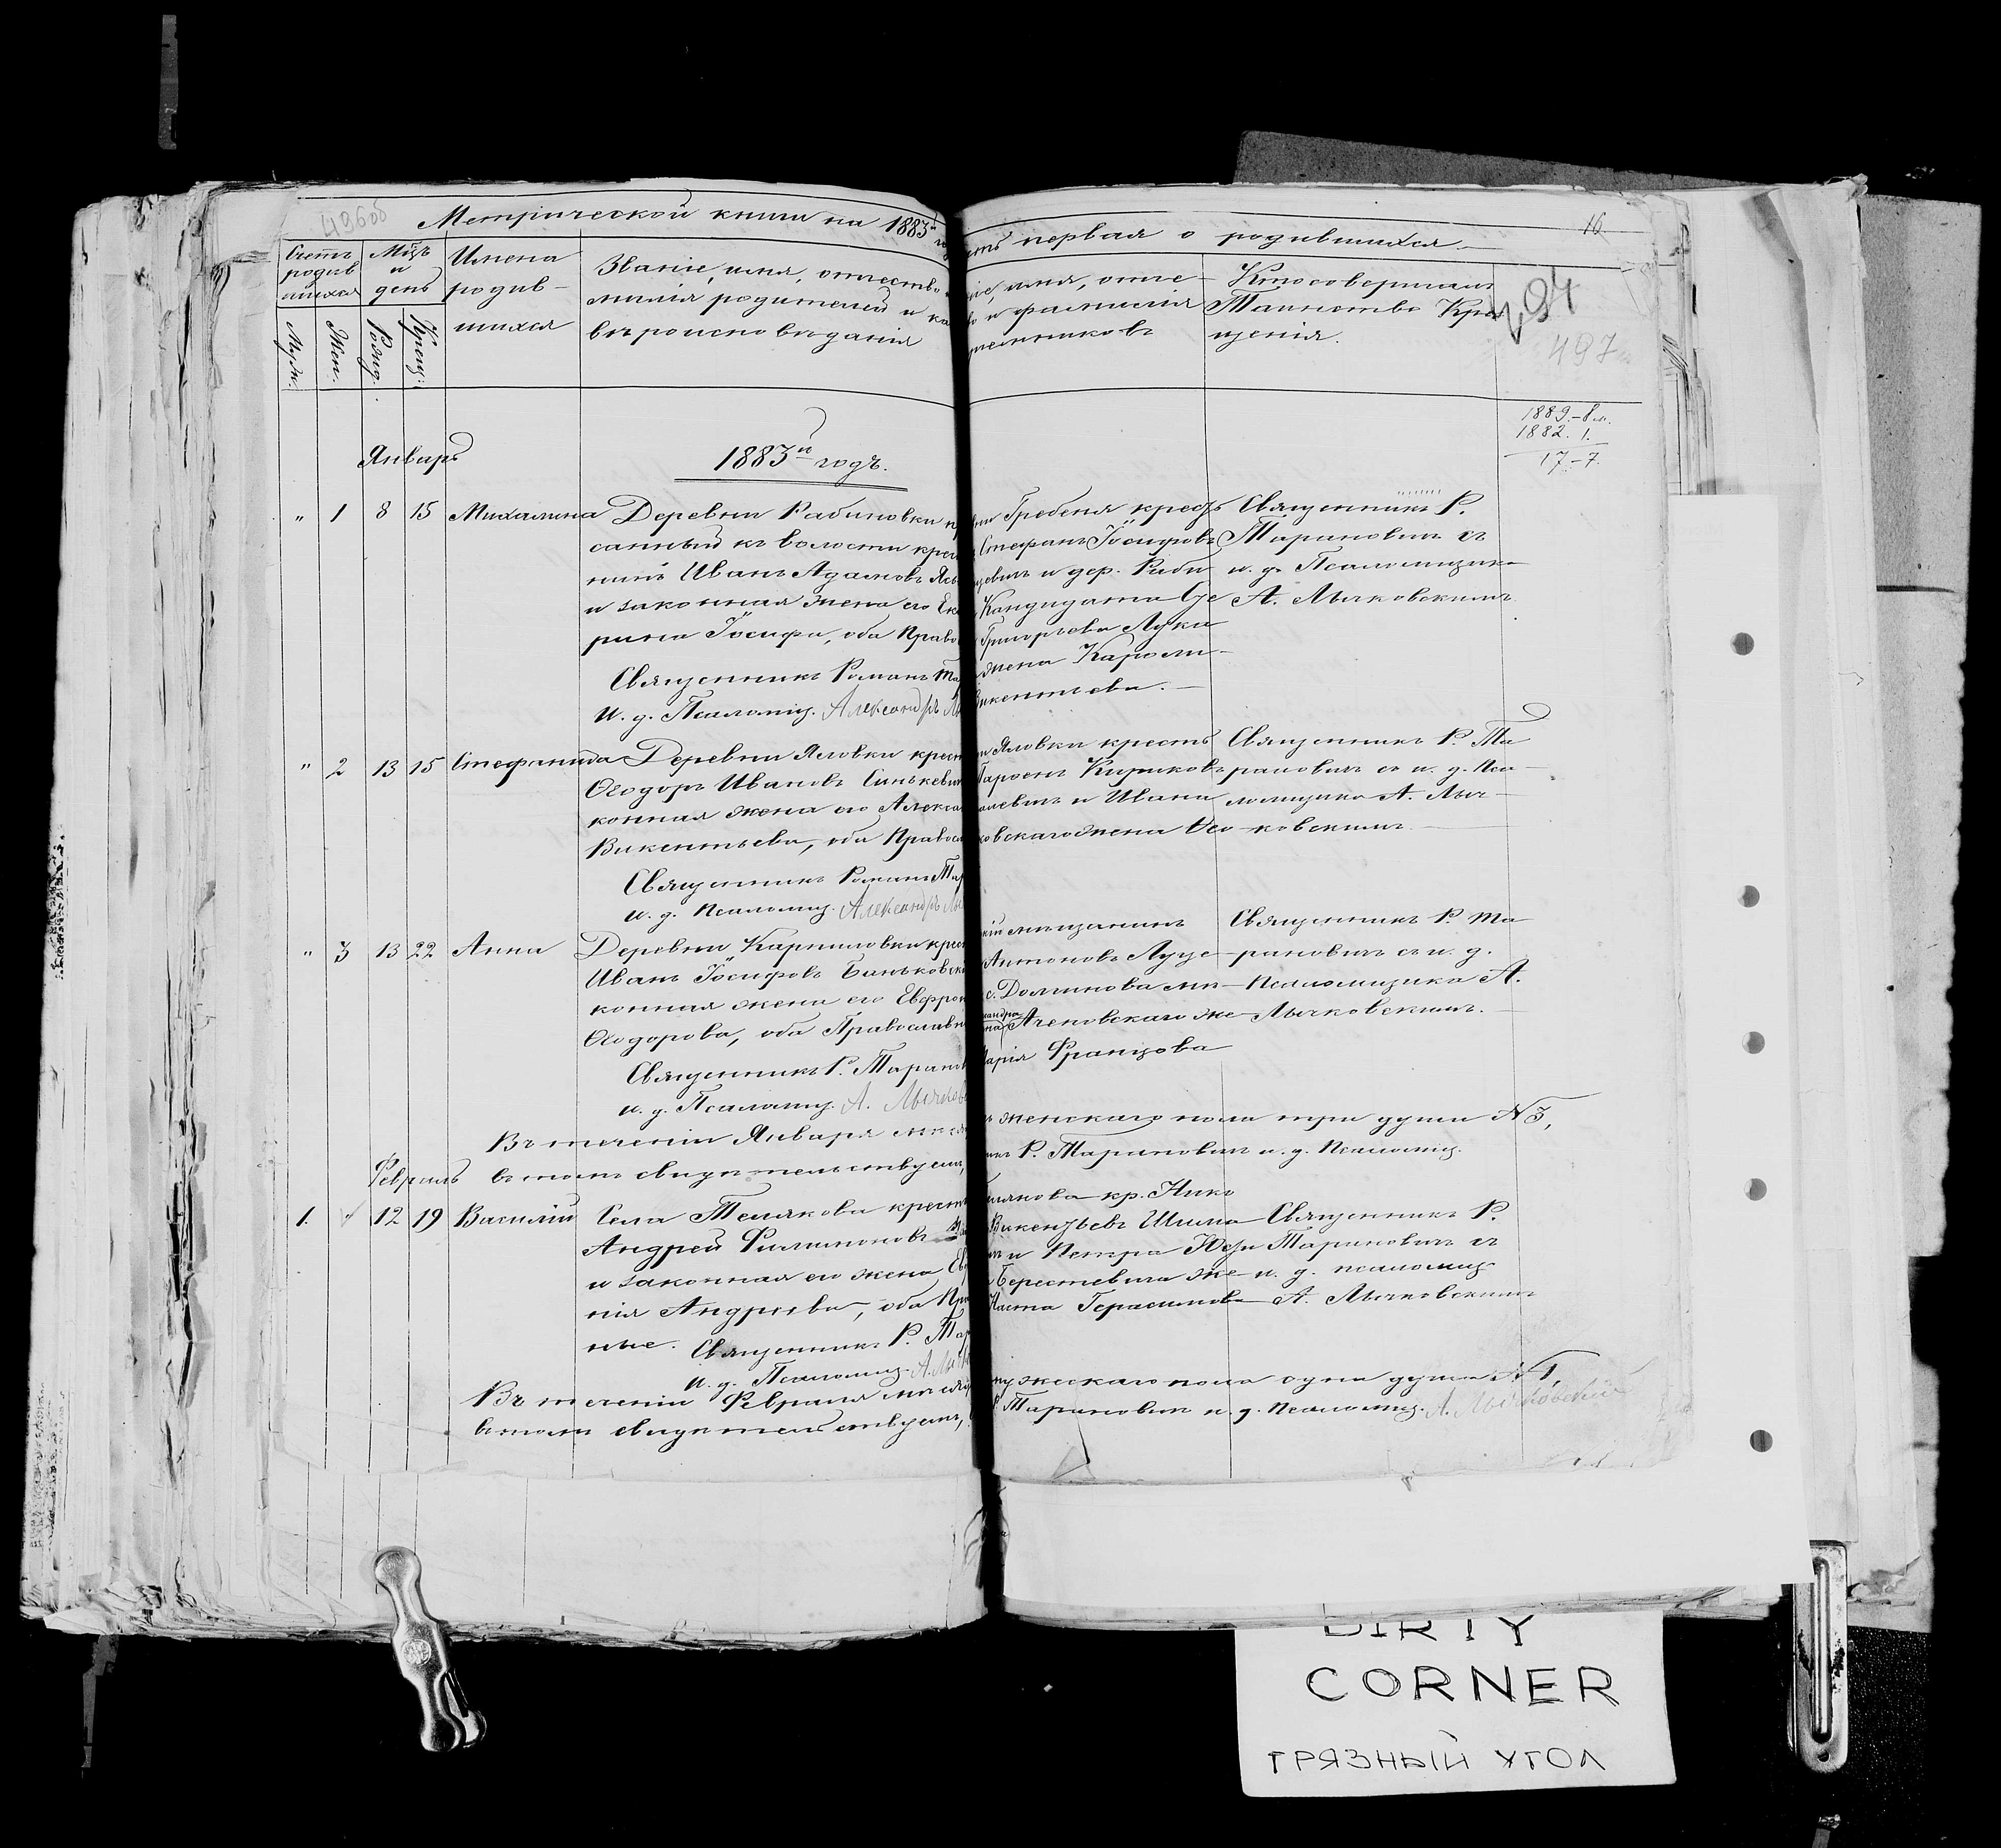 496об
Метрической книги на 1883й го
сть первая о родившихся.
16
Счетъ родив шихся
Мцъ и день
Имена родив- шихся
Званіе, имя, отчество
милія родителей и ка
вѣроисповѣданія
іе, имя, отче-
во и фамилія
пріемниковъ
Кто совершалъ
Таинство Кре
щенія.
494
497
Муж.
Жен.
Рожд.
Крещ:
1889.-8 м.
1882. 1.
17-7.
Январь
1883й годъ.
" 1 8 15 Михалина Деревни Рабиновки п
санный къ волости крес
нинъ Иванъ Адамовъ Яс
и законная жена его Ека
рина Іосифа, оба Право
Священникъ Романъ Та
И. д. Псаломщ. Александръ Лы
ни Гребеня кресть
Стефанъ Іосифовъ
евичъ и дер. Раби
Кандидата Се
Григорьева Лука
жена Кароли-
Викентьева.
Священникъ Р.
Тарановичъ съ
и. д. Псаломщик
А. Лычковскимъ
" 2 13 15 Стефанида Деревни Яловки крест
Ѳеодоръ Ивановъ Синькевич
конная жена его Алекса
Викентьева, оба Правосл
Священникъ Романъ Тар
и. д. Псаломщ. Александръ Лы
и Яловки кресть
Тарасъ Кириковъ
левичъ и Ивана
ковскаго жена Ѳео
Священникъ Р. Та
рановичъ съ и. д. Пса-
ломщика А. Лыч-
ковскимъ.
" 3 13 22 Анна Деревни Карпиловки крес
Иванъ Іосифовъ Баньковск
конная жена его Евфрос
Ѳеодорова, оба Православн
Священникъ Р. Таранов
и. д. Псаломщ. А. Лычков
кій мѣщанинъ
Антоновъ Луце-
с. Долгинова мѣ-
Аченовскаго же-
Марія Францова
Священникъ Р. Та
рановичъ съ и. д.
Псаломщика А.
Лычковскимъ.
Въ теченіи Января мѣся
женскаго пола три души № 3,
въ томъ свидѣтельствуемъ,
къ Р. Тарановичъ и. д. Псаломщ.
Февраль
1. " 12 19 Василій Села Телякова кресть
Андрей Филимоновъ
и законная его жена Ев
нія Андреева, оба Пра
ные. Священникъ Р. Тар
И. д. Псаломщ. А. Лы
Телякова кр. Нико
Викентьевъ Шима
и Петра Юзи
Берестевича же-
Наста Герасимова
Священникъ Р.
Тарановичъ съ
и. д. псаломщ.
А. Лычковскимъ
Въ теченіи Февраля мѣсяц
мужескаго пола одна душа № 1,
въ томъ свидѣтельствуемъ,
Р. Тарановичъ и. д. Псаломщ. А. Лычковскій
DIRTY
CORNER
ГРЯЗНЫЙ УГОЛ